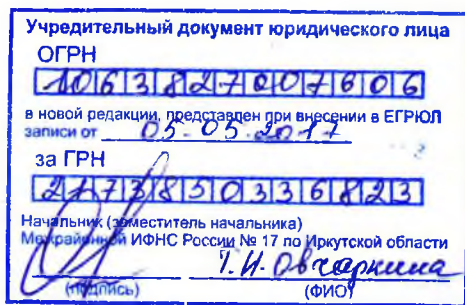 Учредительный документ юридического лица
ОГРН
1063827007606
в новой редакции, представлен при внесении в ЕГРЮЛ
записи от 05.05.2017
за ГРН
2173850336823
Начальник (заместитель начальника)
Межрайонной ИФНС России № 17 по Иркутской области
Т.И. Овчаркина
(подпись) (ФИО)